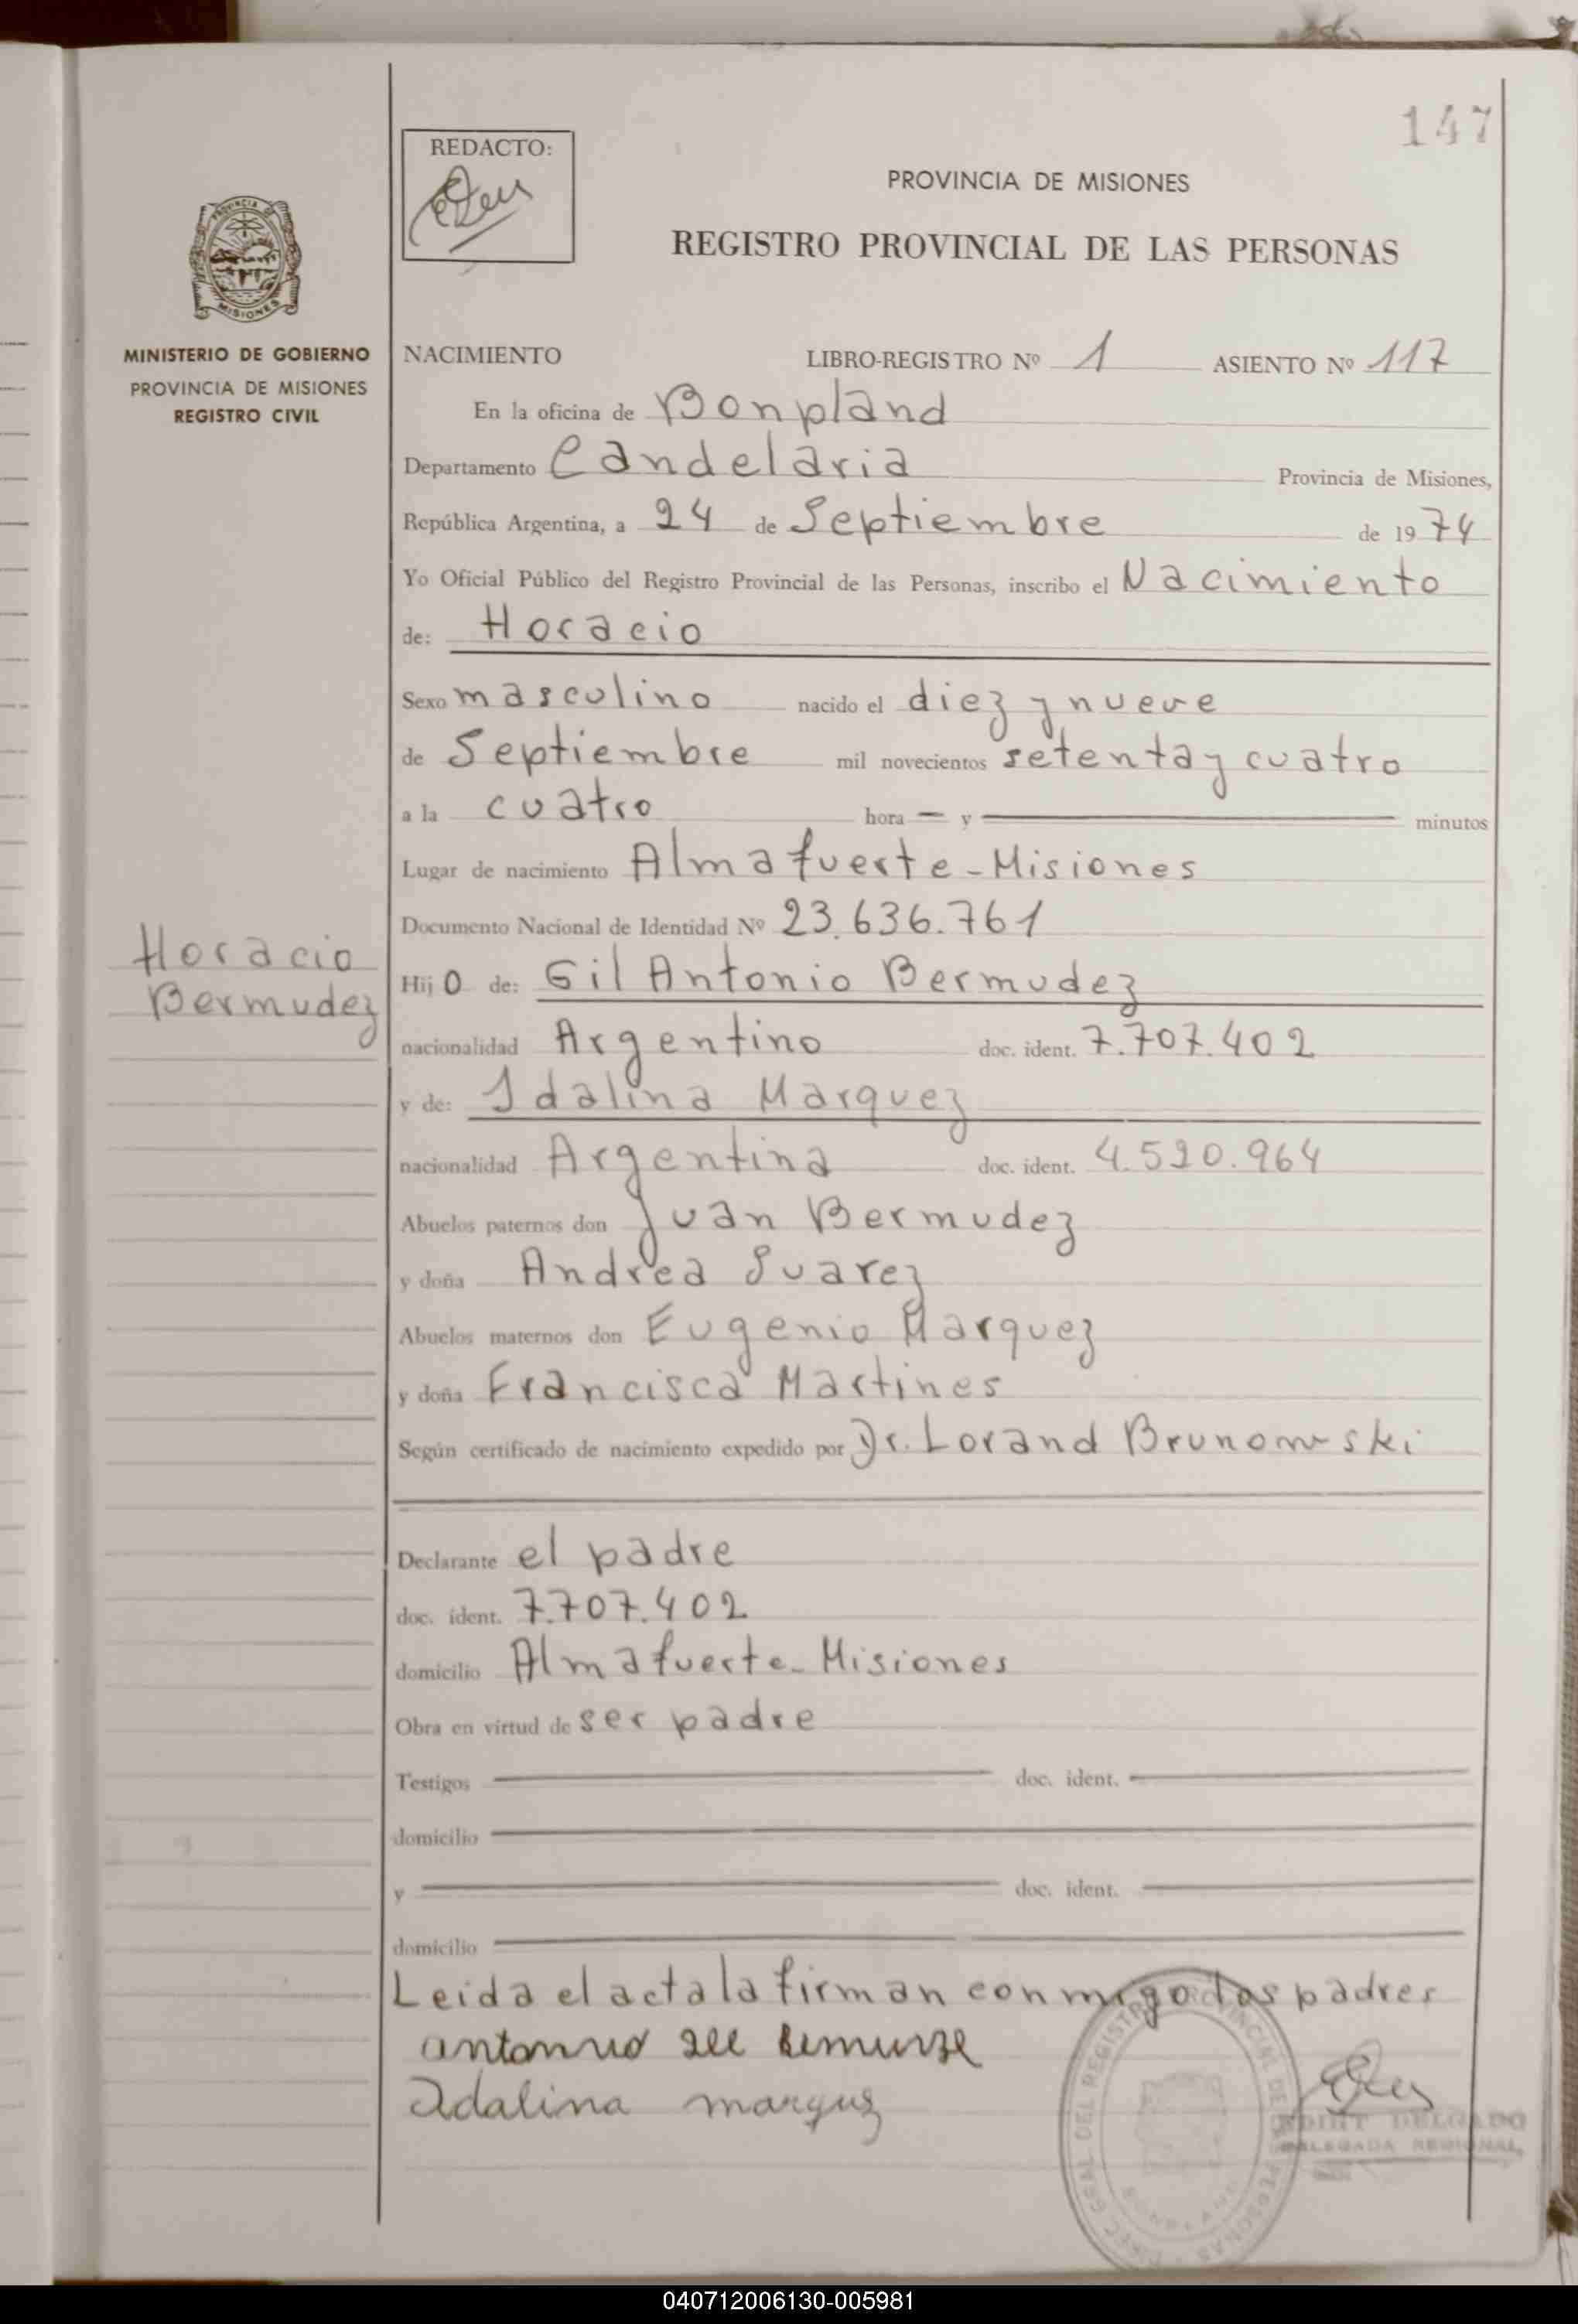 147
REDACTO:
PROVINCIA DE MISIONES
REGISTRO PROVINCIAL DE LAS PERSONAS
PROVINCIA DE
MISIONES
MINISTERIO DE GOBIERNO
PROVINCIA DE MISIONES
REGISTRO CIVIL
NACIMIENTO LIBRO-REGISTRO Nº 1 ASIENTO Nº 117
En la oficina de Bonpland
Departamento Candelaria Provincia de Misiones,
República Argentina, a 24 de Septiembre de 1974
Yo Oficial Público del Registro Provincial de las Personas, inscribo el Nacimiento
de: Horacio
Sexo masculino nacido el diez y nueve
de Septiembre mil novecientos setenta y cuatro
a la cuatro hora — y — minutos
Lugar de nacimiento Almafuerte - Misiones
Documento Nacional de Identidad Nº 23.636.761
Horacio
Bermudez
Hijo de: Gil Antonio Bermudez
nacionalidad Argentino doc. ident. 7.707.402
y de: Idalina Marquez
nacionalidad Argentina doc. ident. 4.520.964
Abuelos paternos don Juan Bermudez
y doña Andrea Suarez
Abuelos maternos don Eugenio Marquez
y doña Francisca Martines
Según certificado de nacimiento expedido por Dr. Lorand Brunowski
Declarante el padre
doc. ident. 7.707.402
domicilio Almafuerte - Misiones
Obra en virtud de ser padre
Testigos — doc. ident. —
domicilio —
y — doc. ident. —
domicilio —
Leida el acta la firman conmigo los padres
adalina marquz
DELGADO
DELEGADA REGIONAL
040712006130-005981